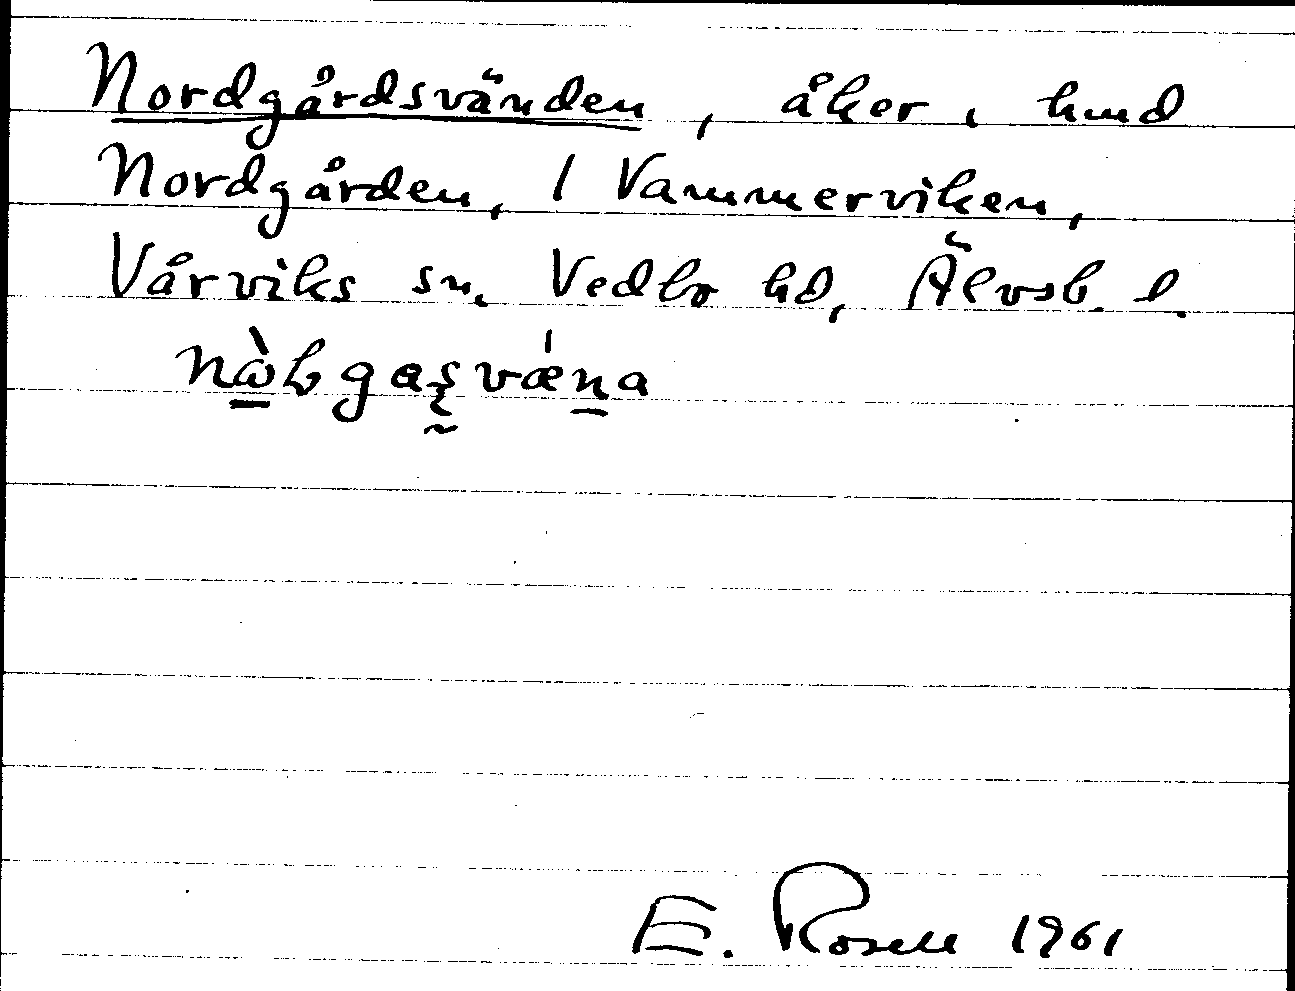 Nordgårdsvänden, åker, hmd
Nordgården, 1 Vammerviken,
Vårviks sn, Vedbo hd, Älvsb. l.
E. Rosell 1961